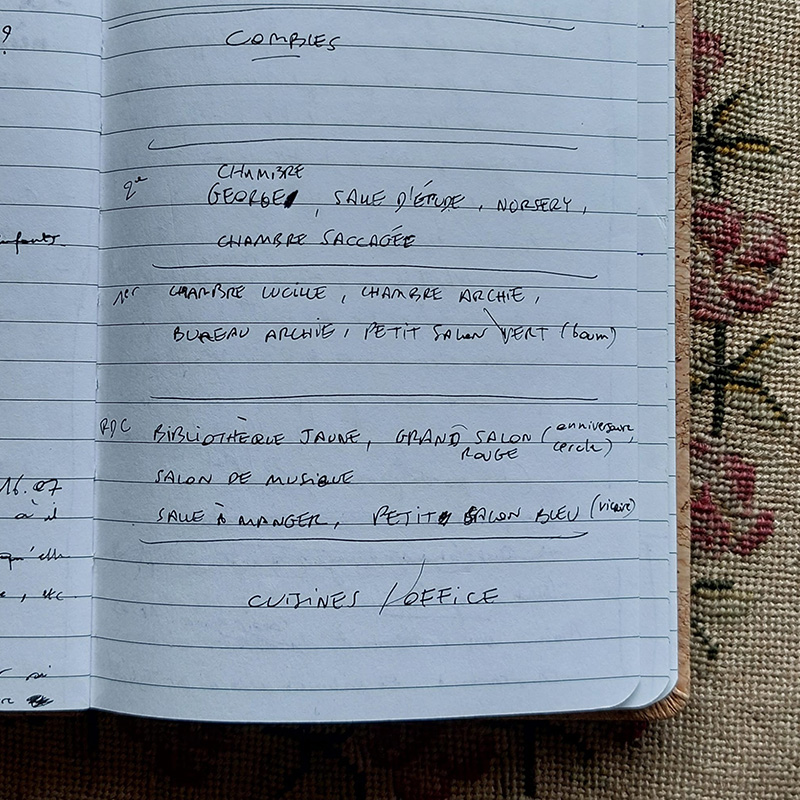 ?
COMBLES
CHAMBRE
2e GEORGE, SALLE D'ÉTUDE, NORSERY,
CHAMBRE SACCAGÉE
1er CHAMBRE LUCILLE, CHAMBRE ARCHIE,
BUREAU ARCHIE, PETIT SALON VERT (boum)
RDC BIBLIOTHÈQUE JAUNE, GRAND SALON (anniversaire,
ROUGE cercle)
SALON DE MUSIQUE
SALLE À MANGER, PETIT SALON BLEU (vicaire)
CUISINES / OFFICE
16.07
à il
qu'elle
, etc